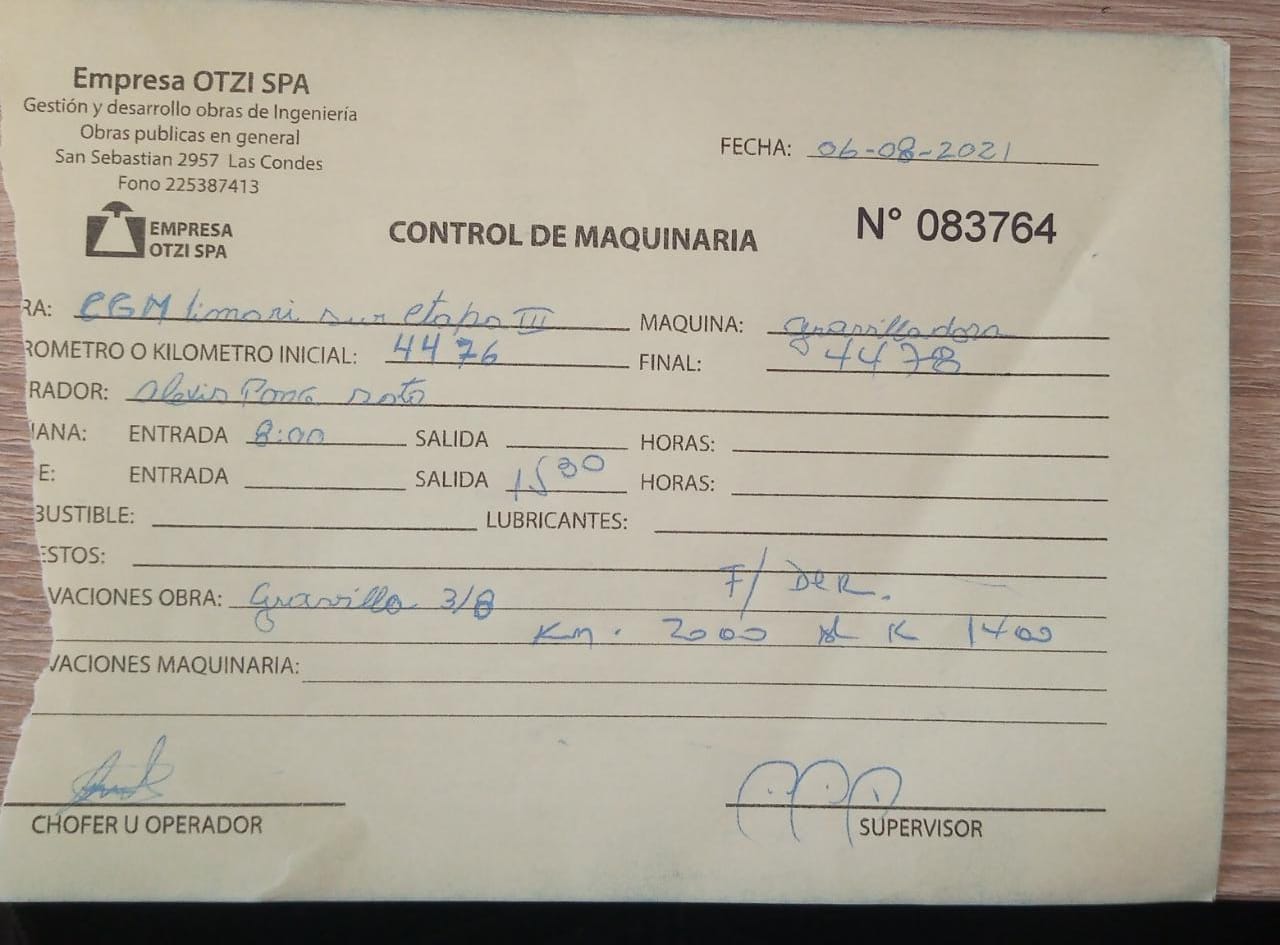 Empresa OTZI SPA
Gestión y desarrollo obras de Ingeniería
Obras publicas en general
San Sebastian 2957 Las Condes
Fono 225387413
FECHA: 06-08-2021
EMPRESA
OTZI SPA
CONTROL DE MAQUINARIA
N° 083764
RA: CGM limari sur etapa III MAQUINA: gravilladora
ROMETRO O KILOMETRO INICIAL: 4476 FINAL: 4478
RADOR: Alexis soto
ANA: ENTRADA 8:00 SALIDA HORAS:
E: ENTRADA SALIDA 15 30 HORAS:
BUSTIBLE: LUBRICANTES:
ESTOS:
F/ DER.
VACIONES OBRA: Gravilla 3/8
Km. 2000 al K 1400
VACIONES MAQUINARIA:
CHOFER U OPERADOR SUPERVISOR